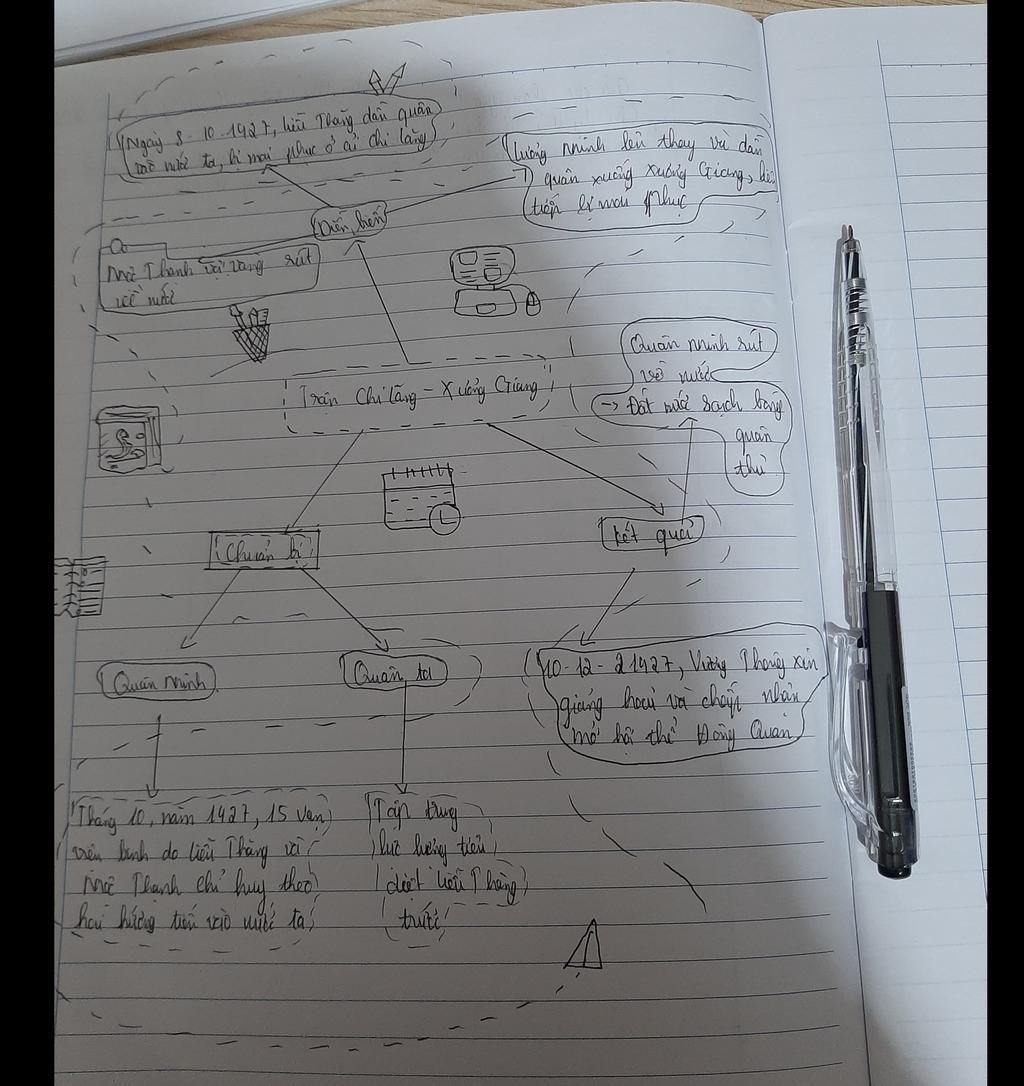 Ngày 8-10-1427, liễu Thăng dẫn quân
vào nước ta, bị mai phục ở ải chi lăng
lương minh lên thay và dẫn
quân xuống xương Giang, liên
tiếp bị mai phục
Diễn biến
Mộc Thanh vội vàng rút
về nước
Quân minh rút
về nước
Trận Chi lăng - Xương Giang
→ Đất nước sạch bóng
quân
thù
Kết quả
Chuẩn bị
Quân Minh
Quân ta
10-12-21427, Vương Thông xin
giảng hoà và chấp nhận
mở hội thề Đông Quan
Tháng 10, năm 1427, 15 vạn
viện binh do liễu Thăng và
Mộc Thạnh chỉ huy theo
hai hướng tiến vào nước ta
Tập trung
lực lượng tiêu
diệt liễu Thăng
trước